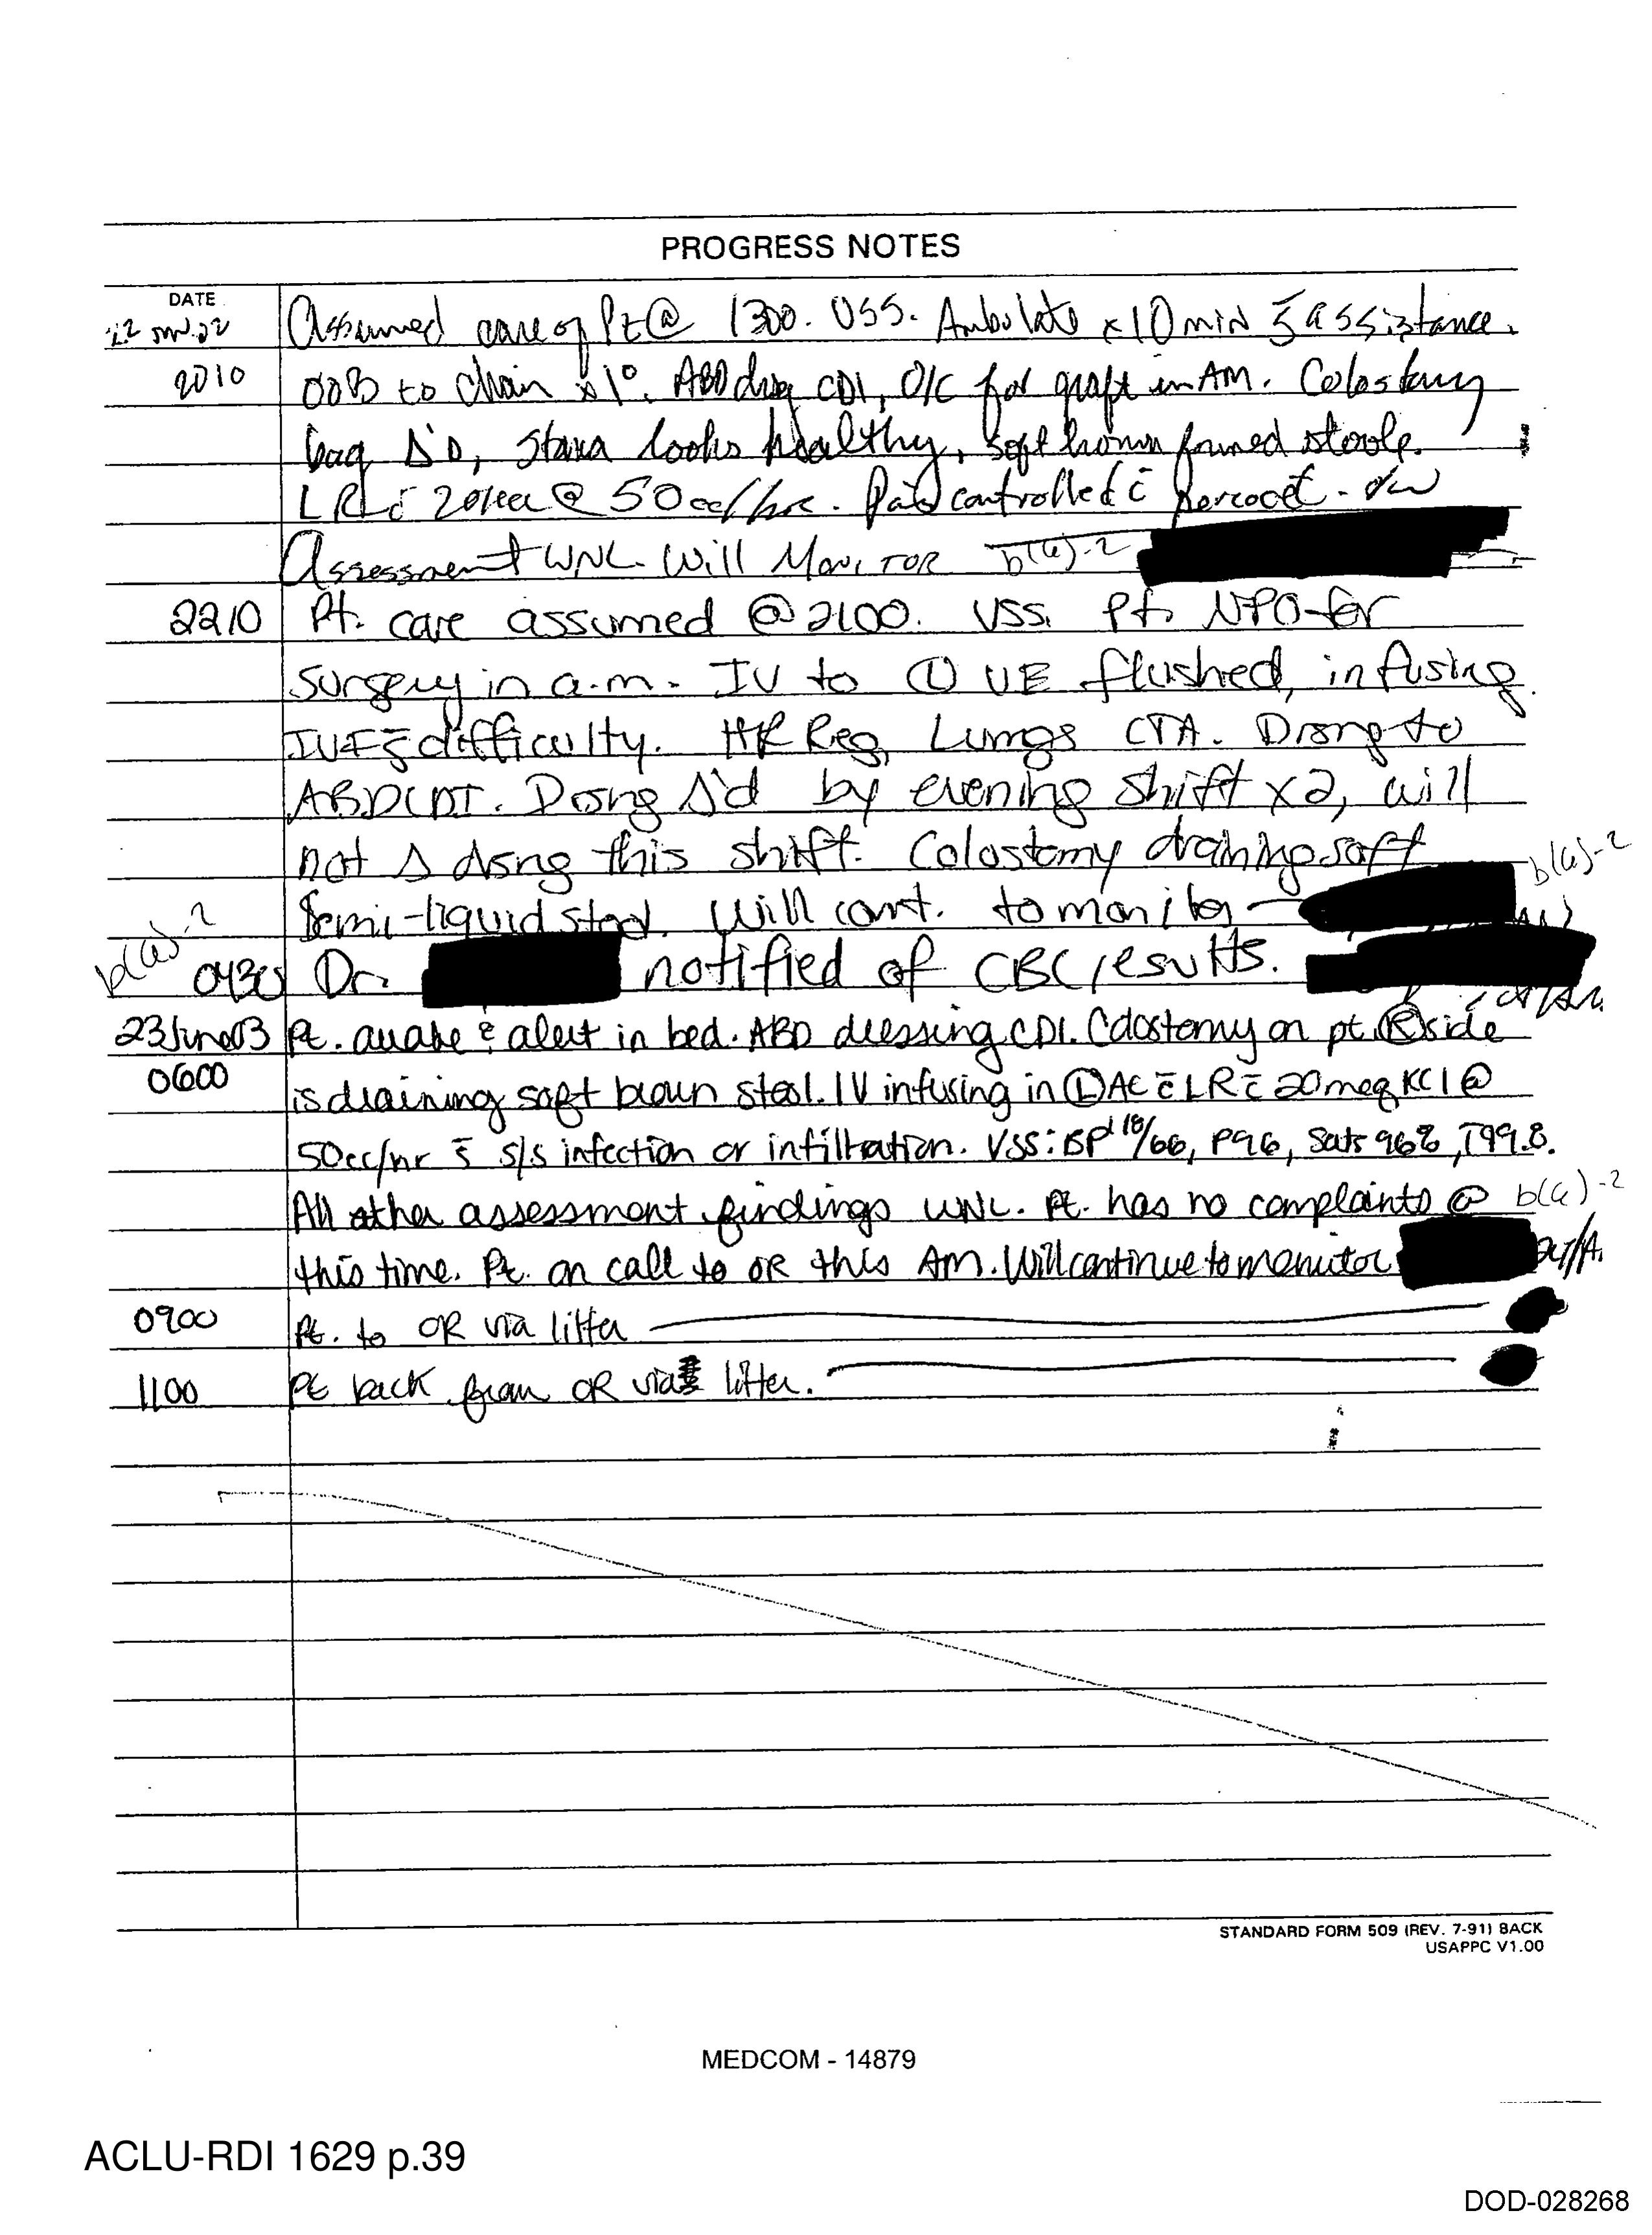 PROGRESS NOTES
DATE
22 Assumed care of Pt @ 1300. VSS. Ambulate x 10 min s̄ assistance.
2010 OOB to chair x 1°. ABD dsg CDI, O/C for graft in AM. Colostomy
bag Δ'D, stoma looks healthy, soft brown formed stools.
LR c̄ 20 @ 50cc/hr. Pain controlled c̄ percocet.
Assessment WNL. Will Monitor b(6)-2
2210 Pt. care assumed @ 2100. VSS. Pt. NPO for
surgery in a.m. IV to Ⓛ UE flushed, infusing
IVF s̄ difficulty. HR Reg, Lungs CTA. Drsng to
ABD CDI. Drsng Δ'd by evening shift x2, will
not Δ drsng this shift. Colostomy draining soft
b(6)-2
semi-liquid stool. Will cont. to monitor
b(6)-2
0430 Dr. notified of CBC results.
23June03 Pt. awake & alert in bed. ABD dressing CDI. Colostomy on pt. Ⓡ side
0600 is draining soft brown stool. IV infusing in Ⓛ AC c̄ LR c̄ 20meq KCl @
50cc/hr s̄ s/s infection or infiltration. VSS: BP 118/66, P96, Sats 96%, T99.8.
All other assessment findings WNL. Pt. has no complaints @ b(6)-2
this time. Pt. on call to OR this AM. Will continue to monitor
0900 Pt. to OR via litter
1100 Pt back from OR via litter.
STANDARD FORM 509 (REV. 7-91) BACK
USAPPC V1.00
MEDCOM - 14879
ACLU-RDI 1629 p.39
DOD-028268